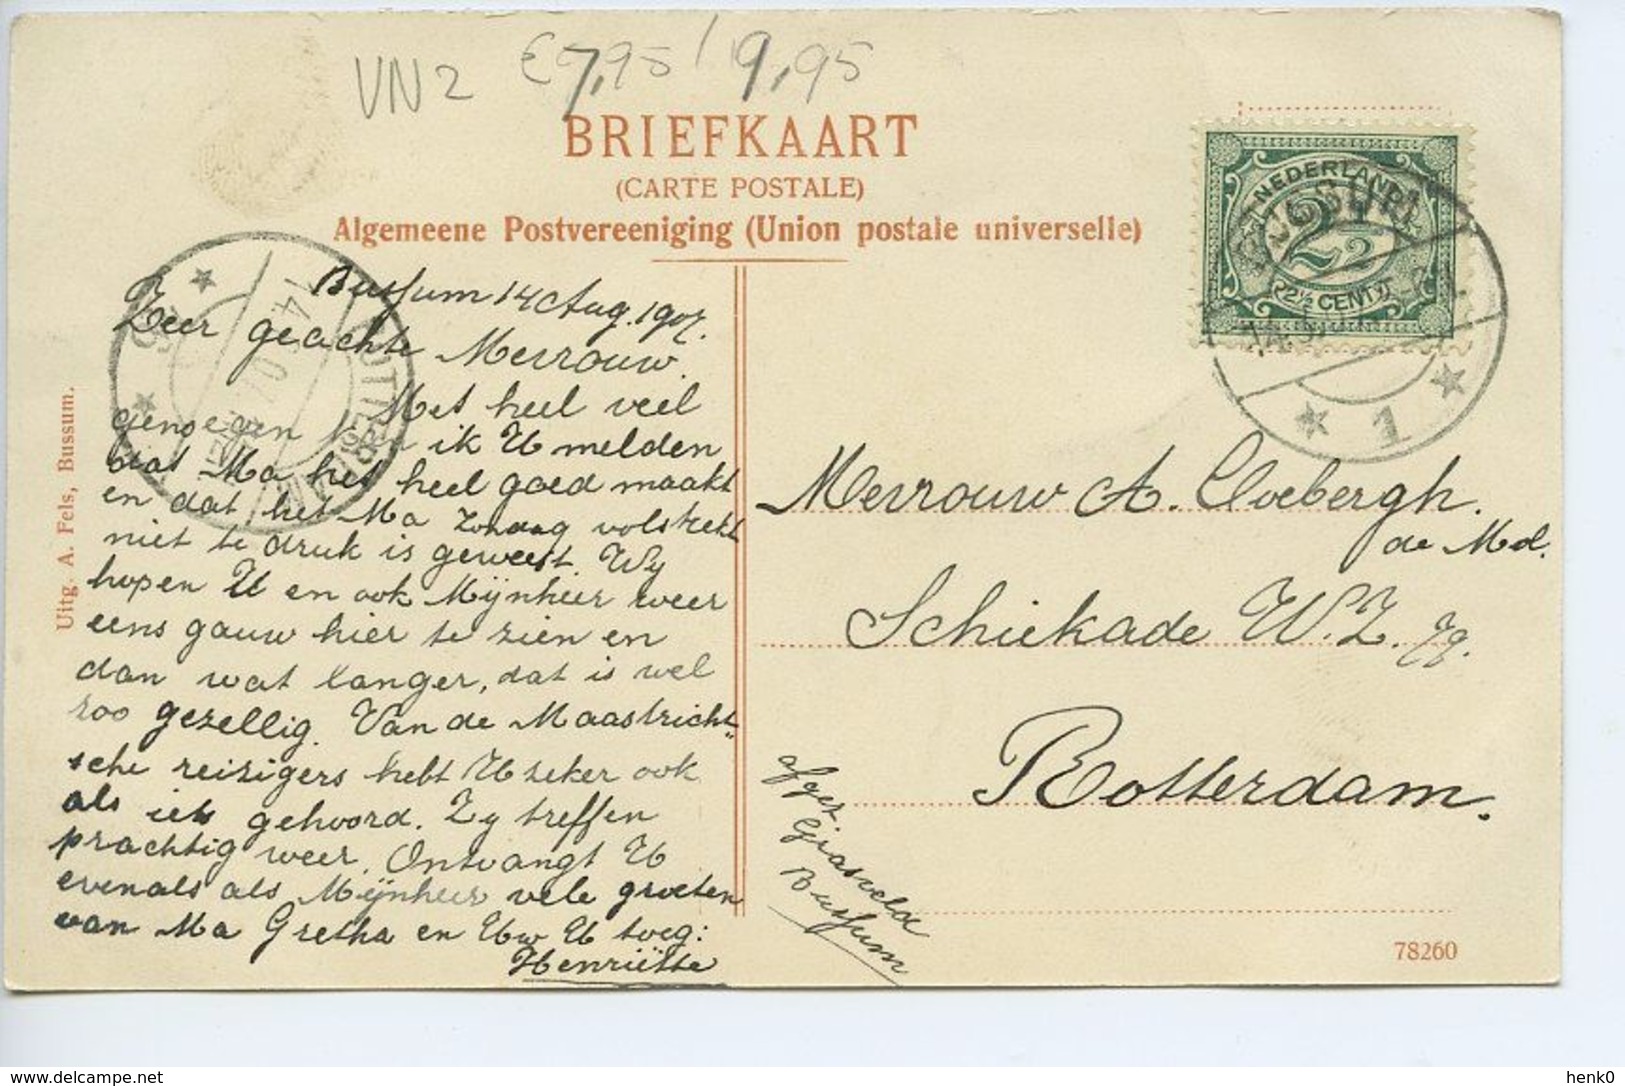 VN2 €7,95 / 9,95
BRIEFKAART
(CARTE POSTALE)
Algemeene Postvereeniging (Union postale universelle)
NEDERLAND
2½
2½ CENT
BUSSUM
1
Bussum 14 Aug. 1907.
Zeer geachte Mevrouw.
Met heel veel
genoegen k n ik U melden
dat Ma het heel goed maakt
en dat het Ma Zondag volstrekt
niet te druk is geweest. Wy
hopen U en ook Mijnheer weer
eens gauw hier te zien en
dan wat langer, dat is wel
zoo gezellig. Van de Maastricht„
sche reizigers hebt U zeker ook
als iets gehoord. Zy treffen
prachtig weer. Ontvangt U
evenals als Mijnheer vele groeten
van Ma Gretha en Uw U toeg:
Henriëtte
Mevrouw A. Cloebergh.
de Mol.
Schiekade W.Z. 79.
Rotterdam.
afgez.
Grasveld
Bussum
Uitg. A. Fels, Bussum.
78260
delcampe.net
henk0